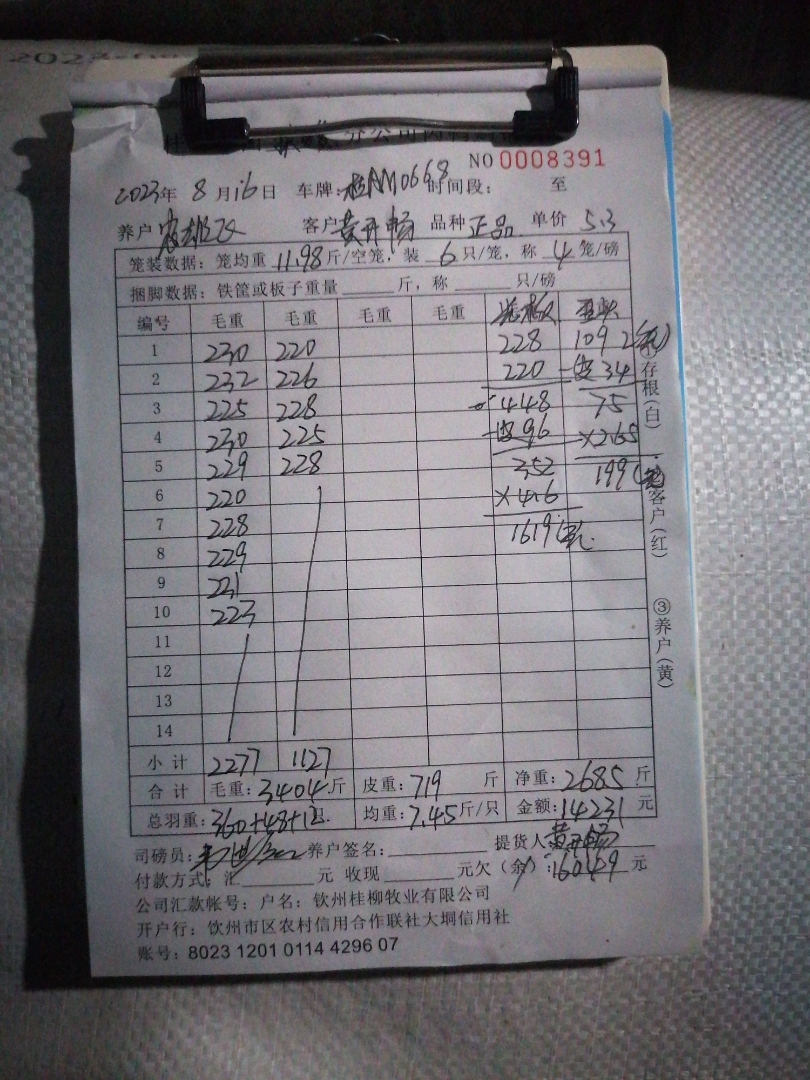 分公司
NO 0008391
2023年 8月16日 车牌:桂AM0668 时间段: 至
养户 客户 黄开畅 品种 正品 单价 5.3
笼装数据:笼均重 11.98 斤/空笼,装 6 只/笼,称 4 笼/磅
捆脚数据:铁筐或板子重量 斤,称 只/磅
编号 毛重 毛重 毛重 毛重
1 230 220 228 109
2 232 226 220 34
3 225 228 448 75
4 230 225 96 ×2.65
5 229 228 352 199
6 220 ×4.6
7 228 1619
8 229
9 231
10 223
11
12
13
14
小计 2277 1127
合计 毛重:3404斤 皮重:719 斤 净重:2685 斤
总羽重:360+48+12只 均重:7.45斤/只 金额:14231 元
司磅员: 养户签名: 提货人 黄开畅
付款方式:汇 元 收现 元欠(余):16049 元
公司汇款帐号:户名:钦州桂柳牧业有限公司
开户行:钦州市区农村信用合作联社大垌信用社
账号:8023 1201 0114 4296 07
①存根(白)
客户(红)
③养户(黄)